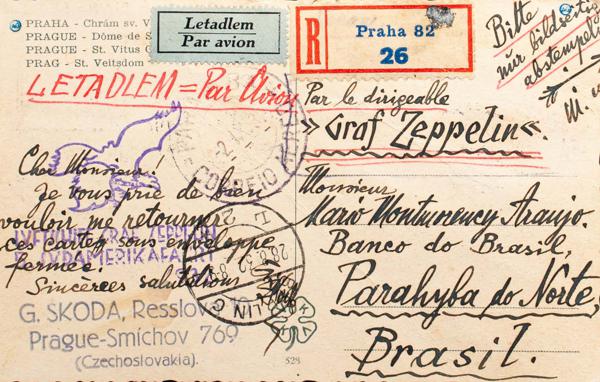 PRAHA - Chrám sv. V
PRAGUE - Dôme de S
PRAGUE - St. Vitus C
PRAG - St. Veitsdom
Letadlem
Par avion
R
Praha 82
26
Bitte
nur bildseitig
abstempeln
LETADLEM = Par Avion
Par le dirigeable
»Graf Zeppelin«.
CORREIO
Cher Monsieur!
Je vous prie de bien
vouloir me retourner
ces cartes sous enveloppe
fermée!
Sincères salutations
LUFTSCHIFF GRAF ZEPPELIN
SÜDAMERIKAFAHRT
Monsieur
Mario Montunency Araujo.
Banco do Brasil,
Parahyba do Norte,
Brasil.
G. SKODA, Resslova 10
Prague-Smíchov 769
(Czechoslovakia).
528